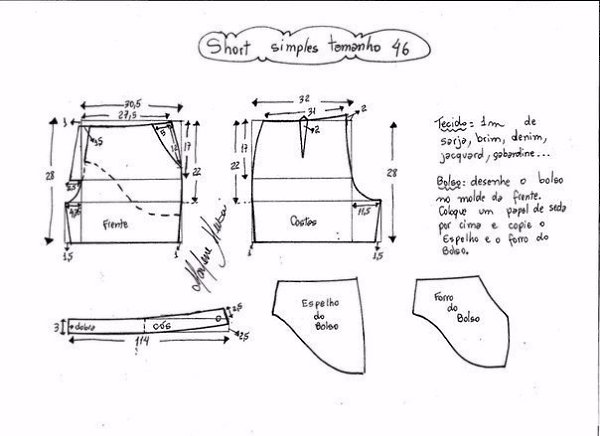 Short simples tamanho 46
30,5
27,5
1
3,5
8
12
17
22
28
2,5
4,5
Frente
1,5
1
32
31
2
2
17
22
28
Costas
11,5
1
1,5
Tecido: 1m de
sarja, brim, denim,
jacquard, gabardine...
Bolso: desenhe o bolso
no molde da frente.
Coloque um papel de seda
por cima e copie o
Espelho e o forro do
Bolso.
3
dobra
cós
2,5
2,5
114
Espelho
do
Bolso
Forro
do
Bolso